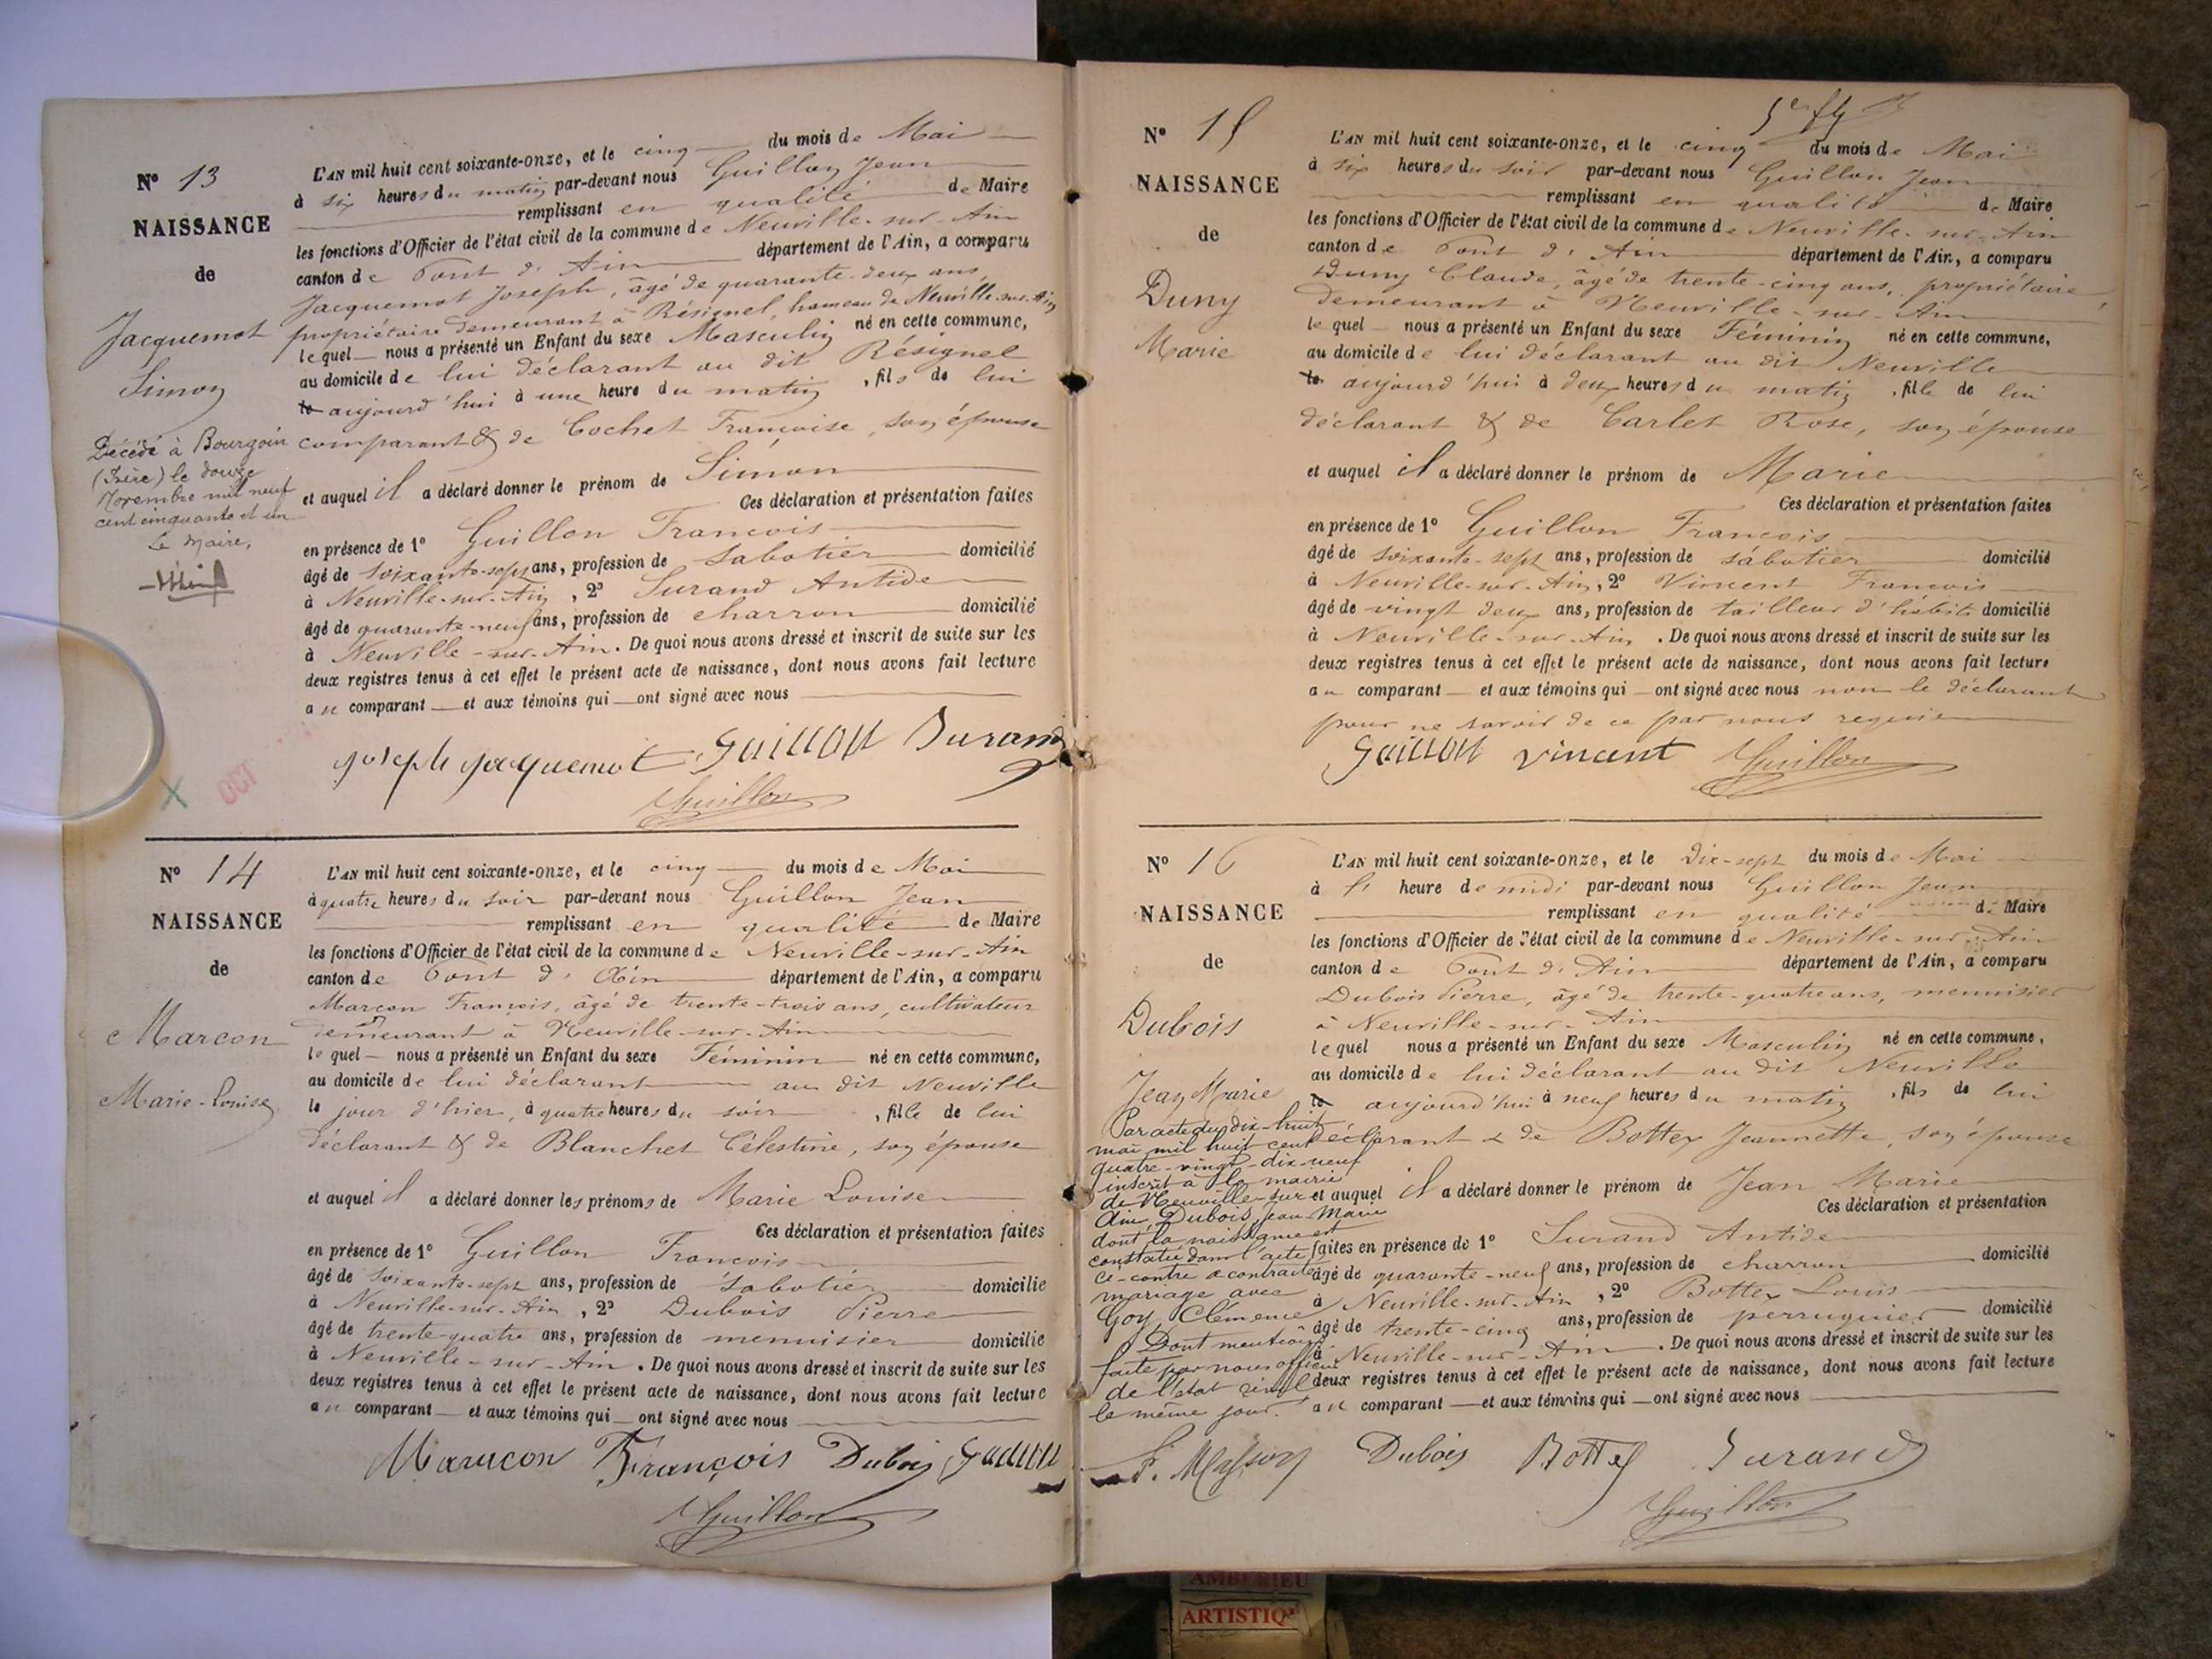 N° 13
NAISSANCE
de
Jacquemot
Simon
Décédé à Bourgoin
(Isère) le douze
Novembre mil neuf
cent cinquante et un
Le Maire,
L'AN mil huit cent soixante-onze, et le cinq du mois de Mai
à six heures du matin par-devant nous Guillon Jean
remplissant en qualité de Maire
les fonctions d'Officier de l'état civil de la commune de Neuville-sur-Ain
canton de Pont d'Ain département de l'Ain, a comparu
Jacquemot Joseph, âgé de quarante-deux ans,
propriétaire demeurant à Résignel, hameau de Neuville-sur-Ain
lequel nous a présenté un Enfant du sexe Masculin né en cette commune,
au domicile de lui déclarant au dit Résignel
le aujourd'hui à une heure du matin, fils de lui
comparant & de Cochet Francoise, son épouse
et auquel il a déclaré donner le prénom de Simon
Ces déclaration et présentation faites
en présence de 1° Guillon Francois
âgé de soixante-sept ans, profession de sabotier domicilié
à Neuville-sur-Ain, 2° Durand Antide
âgé de quarante-neuf ans, profession de charron domicilié
à Neuville-sur-Ain. De quoi nous avons dressé et inscrit de suite sur les
deux registres tenus à cet effet le présent acte de naissance, dont nous avons fait lecture
au comparant et aux témoins qui ont signé avec nous
joseph jacquemot Guillon Durand
Guillon
X
N° 14
NAISSANCE
de
Marcon
Marie-Louise
L'AN mil huit cent soixante-onze, et le cinq du mois de Mai
à quatre heures du soir par-devant nous Guillon Jean
remplissant en qualité de Maire
les fonctions d'Officier de l'état civil de la commune de Neuville-sur-Ain
canton de Pont d'Ain département de l'Ain, a comparu
Marcon François, âgé de trente-trois ans, cultivateur
demeurant à Neuville-sur-Ain
lequel nous a présenté un Enfant du sexe Féminin né en cette commune,
au domicile de lui déclarant au dit Neuville
le jour d'hier, à quatre heures du soir, fille de lui
déclarant & de Blanchet Célestine, son épouse
et auquel il a déclaré donner les prénoms de Marie Louise
Ces déclaration et présentation faites
en présence de 1° Guillon Francois
âgé de soixante-sept ans, profession de sabotier domicilié
à Neuville-sur-Ain, 2° Dubois Pierre
âgé de trente-quatre ans, profession de menuisier domicilié
à Neuville-sur-Ain. De quoi nous avons dressé et inscrit de suite sur les
deux registres tenus à cet effet le présent acte de naissance, dont nous avons fait lecture
au comparant et aux témoins qui ont signé avec nous
Marucon François Dubois Guillon
Guillon
N° 15
NAISSANCE
de
Duny
Marie
L'AN mil huit cent soixante-onze, et le cinq du mois de Mai
à six heures du soir par-devant nous Guillon Jean
remplissant en qualité de Maire
les fonctions d'Officier de l'état civil de la commune de Neuville-sur-Ain
canton de Pont d'Ain département de l'Ain, a comparu
Duny Claude, âgé de trente-cinq ans, propriétaire,
demeurant à Neuville-sur-Ain
lequel nous a présenté un Enfant du sexe Féminin né en cette commune,
au domicile de lui déclarant au dit Neuville
le aujourd'hui à deux heures du matin, fille de lui
déclarant & de Carlet Rose, son épouse
et auquel il a déclaré donner le prénom de Marie
Ces déclaration et présentation faites
en présence de 1° Guillon Francois
âgé de soixante-sept ans, profession de sabotier domicilié
à Neuville-sur-Ain, 2° Vincent Francois
âgé de vingt deux ans, profession de tailleur d'habits domicilié
à Neuville-sur-Ain. De quoi nous avons dressé et inscrit de suite sur les
deux registres tenus à cet effet le présent acte de naissance, dont nous avons fait lecture
au comparant et aux témoins qui ont signé avec nous non le déclarant
pour ne savoir de ce par nous requis
Guillon vincent Guillon
N° 16
NAISSANCE
de
Dubois
Jean Marie
Par acte du dix-huit
mai mil huit cent
quatre-vingt-dix-neuf
inscrit à la mairie
de Neuville-sur
Ain, Dubois Jean-Marie
dont la naissance est
constatée dans l'acte
ci-contre a contracté
mariage avec
Goy Clémence
Dont mention
faite par nous officier
de l'état civil
le même jour.
F. Masson
L'AN mil huit cent soixante-onze, et le Dix-sept du mois de Mai
à l' heure de midi par-devant nous Guillon Jean
remplissant en qualité de Maire
les fonctions d'Officier de l'état civil de la commune de Neuville-sur-Ain
canton de Pont d'Ain département de l'Ain, a comparu
Dubois Pierre, âgé de trente-quatre ans, menuisier
à Neuville-sur-Ain
lequel nous a présenté un Enfant du sexe Masculin né en cette commune,
au domicile de lui déclarant au dit Neuville
le aujourd'hui à neuf heures du matin, fils de lui
déclarant & de Bottex Jeannette, son épouse
et auquel il a déclaré donner le prénom de Jean Marie
Ces déclaration et présentation
faites en présence de 1° Durand Antide
âgé de quarante-neuf ans, profession de charron domicilié
à Neuville-sur-Ain, 2° Bottex Louis
âgé de trente-cinq ans, profession de perruquier domicilié
à Neuville-sur-Ain. De quoi nous avons dressé et inscrit de suite sur les
deux registres tenus à cet effet le présent acte de naissance, dont nous avons fait lecture
au comparant et aux témoins qui ont signé avec nous
Dubois Bottex Durand
Guillon
AMBERIEU
ARTISTIQ